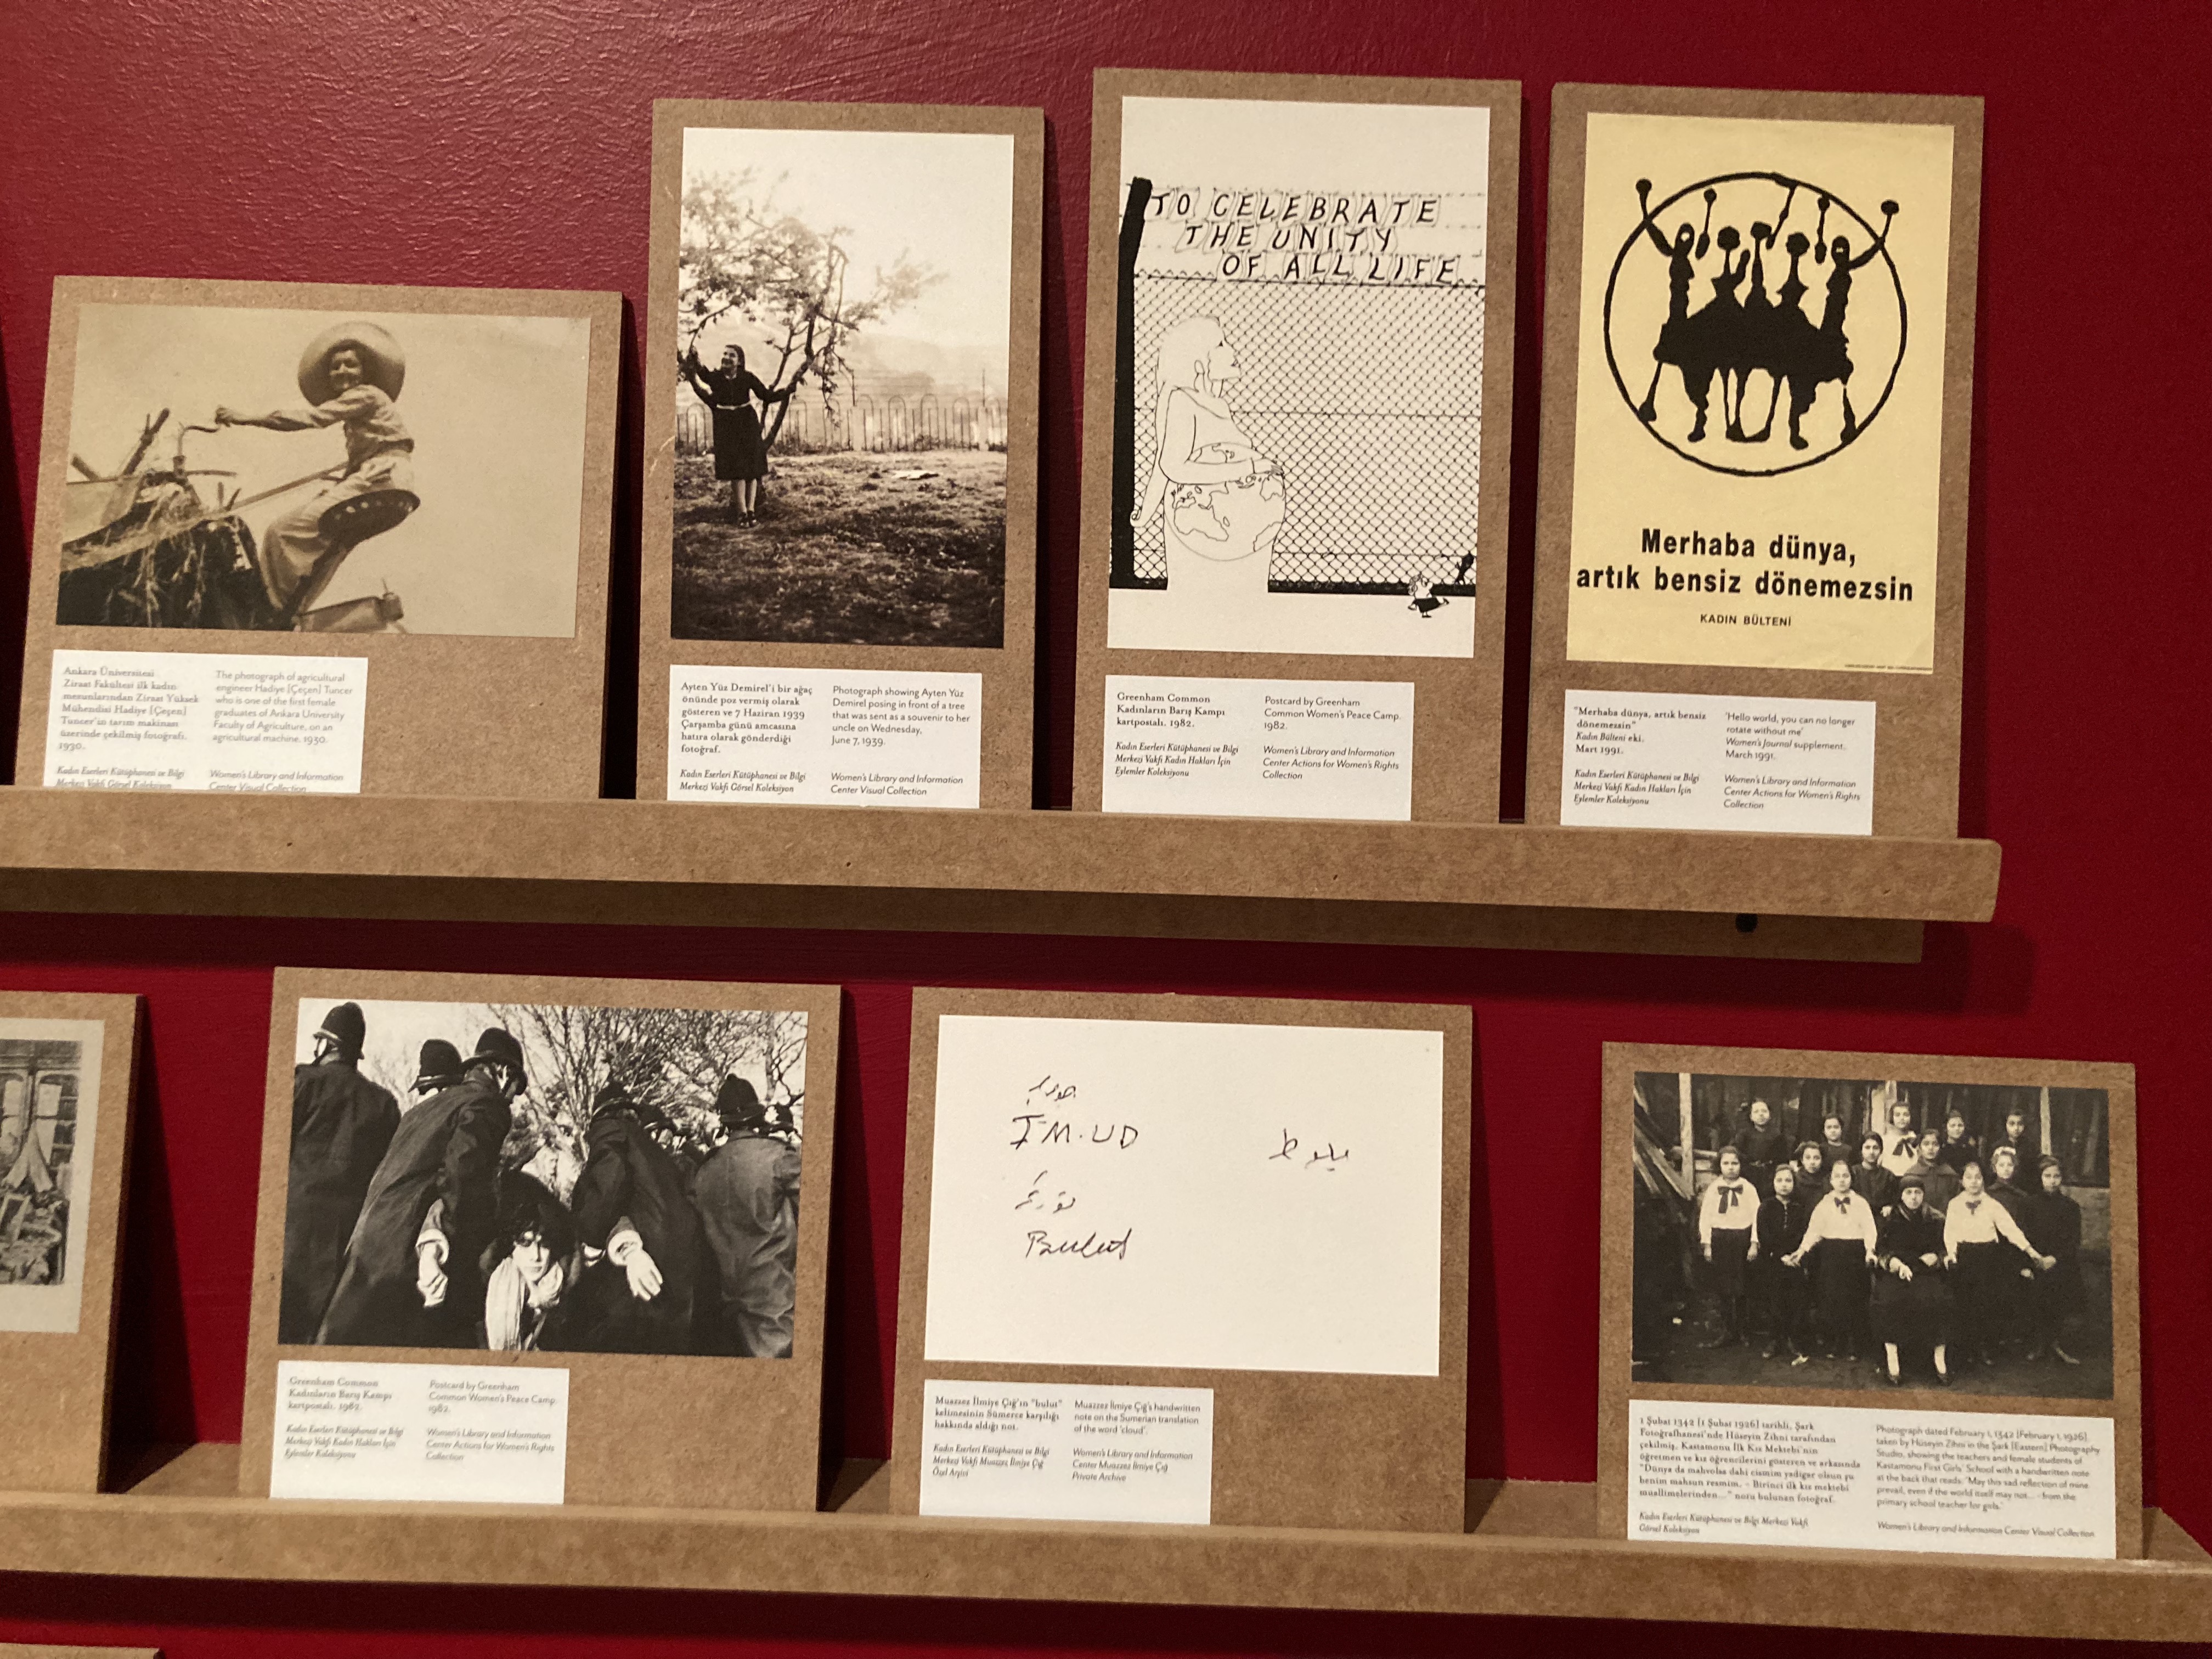 Ankara Üniversitesi
Ziraat Fakültesi ilk kadın
mezunlarından Ziraat Yüksek
Mühendisi Hadiye [Çeçen]
Tuncer'in tarım makinası
üzerinde çekilmiş fotoğrafı.
1930.
Kadın Eserleri Kütüphanesi ve Bilgi
Merkezi Vakfı Görsel Koleksiyon
The photograph of agricultural
engineer Hadiye [Çeçen] Tuncer
who is one of the first female
graduates of Ankara University
Faculty of Agriculture, on an
agricultural machine. 1930.
Women's Library and Information
Center Visual Collection
Ayten Yüz Demirel'i bir ağaç
önünde poz vermiş olarak
gösteren ve 7 Haziran 1939
Çarşamba günü amcasına
hatıra olarak gönderdiği
fotoğraf.
Kadın Eserleri Kütüphanesi ve Bilgi
Merkezi Vakfı Görsel Koleksiyon
Photograph showing Ayten Yüz
Demirel posing in front of a tree
that was sent as a souvenir to her
uncle on Wednesday,
June 7, 1939.
Women's Library and Information
Center Visual Collection
TO CELEBRATE
THE UNITY
OF ALL LIFE
Greenham Common
Kadınların Barış Kampı
kartpostalı. 1982.
Kadın Eserleri Kütüphanesi ve Bilgi
Merkezi Vakfı Kadın Hakları İçin
Eylemler Koleksiyonu
Postcard by Greenham
Common Women's Peace Camp.
1982.
Women's Library and Information
Center Actions for Women's Rights
Collection
Merhaba dünya,
artık bensiz dönemezsin
KADIN BÜLTENİ
"Merhaba dünya, artık bensiz
dönemezsin"
Kadın Bülteni eki.
Mart 1991.
Kadın Eserleri Kütüphanesi ve Bilgi
Merkezi Vakfı Kadın Hakları İçin
Eylemler Koleksiyonu
'Hello world, you can no longer
rotate without me'
Women's Journal supplement.
March 1991.
Women's Library and Information
Center Actions for Women's Rights
Collection
Greenham Common
Kadınların Barış Kampı
kartpostalı. 1982.
Kadın Eserleri Kütüphanesi ve Bilgi
Merkezi Vakfı Kadın Hakları İçin
Eylemler Koleksiyonu
Postcard by Greenham
Common Women's Peace Camp.
1982.
Women's Library and Information
Center Actions for Women's Rights
Collection
IM.UD
Bulut
Muazzez İlmiye Çığ'ın "bulut"
kelimesinin Sümerce karşılığı
hakkında aldığı not.
Kadın Eserleri Kütüphanesi ve Bilgi
Merkezi Vakfı Muazzez İlmiye Çığ
Özel Arşivi
Muazzez İlmiye Çığ's handwritten
note on the Sumerian translation
of the word 'cloud'.
Women's Library and Information
Center Muazzez İlmiye Çığ
Private Archive
1 Şubat 1342 [1 Şubat 1926] tarihli, Şark
Fotoğrafhanesi'nde Hüseyin Zihni tarafından
çekilmiş, Kastamonu İlk Kız Mektebi'nin
öğretmen ve kız öğrencilerini gösteren ve arkasında
"Dünya da mahvolsa dahi cismim yadigar olsun şu
benim mahzun resmim. - Birinci ilk kız mektebi
muallimelerinden..." notu bulunan fotoğraf.
Kadın Eserleri Kütüphanesi ve Bilgi Merkezi Vakfı
Görsel Koleksiyon
Photograph dated February 1, 1342 [February 1, 1926],
taken by Hüseyin Zihni in the Şark [Eastern] Photography
Studio, showing the teachers and female students of
Kastamonu First Girls' School with a handwritten note
at the back that reads: "May this sad reflection of mine
prevail, even if the world itself may not... - from the
primary school teacher for girls."
Women's Library and Information Center Visual Collection